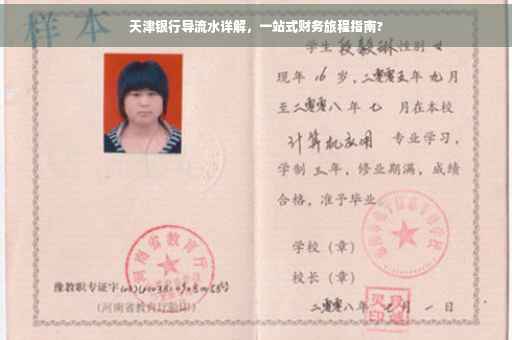 天津银行导流水详解，一站式财务旅程指南?
样本
学生 段毅琳 性别 女
现年 16 岁，二零零五年 九 月
至二零零八 年 七 月在本校
计算机应用 专业学习，
学制 三 年，修业期满，成绩
合格，准予毕业。
学校（章）
校长（章）
二零零八年 七 月 一 日
河南省教育厅
豫教职专证字
(河南省教育厅验印)